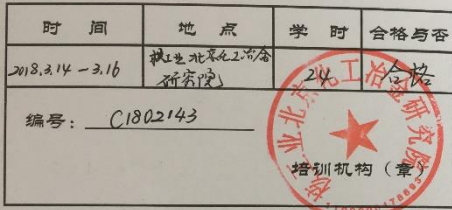 时 间 地 点 学 时 合格与否
2018.3.14-3.16 核工业北京化工冶金研究院 24 合格
编号: C1802143
核工业北京化工冶金研究院
培训机构(章)